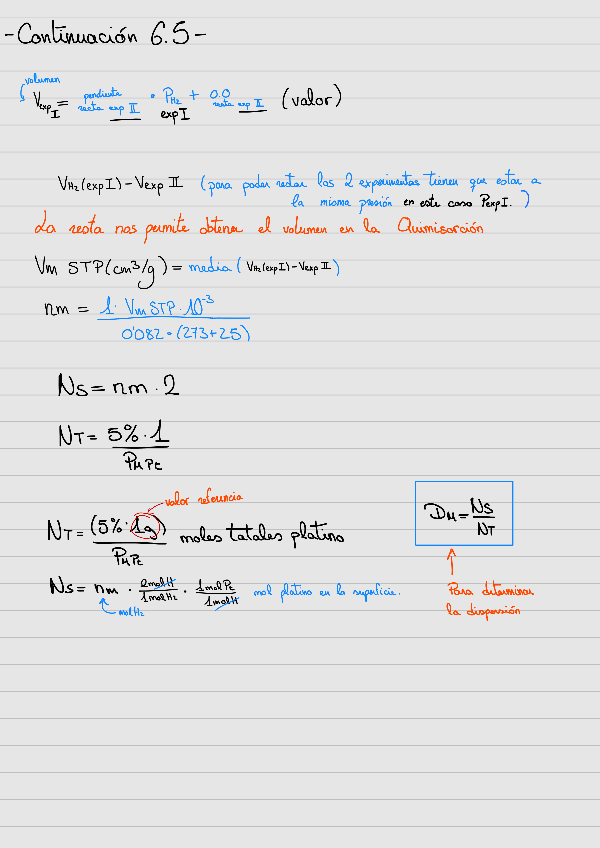 -Continuación 6.5-
volumen
Vexp I = pendiente recta exp II · PH2 exp I + 0.0 recta exp II (valor)
VH2(expI) - Vexp II (para poder restar los 2 experimentos tienen que estar a
la misma presión en este caso PexpI.)
La resta nos permite obtener el volumen en la Quimisorción
Vm STP(cm³/g) = media (VH2(expI) - Vexp II)
nm = 1 · Vm STP · 10⁻³ / 0'082 · (273+25)
Ns = nm · 2
NT = 5% · 1 / PM Pt
valor referencia
NT = (5% · 1g) / PM Pt moles totales platino
DM = Ns / NT
Ns = nm · 2molH / 1molH2 · 1molPt / 1molH mol platino en la superficie.
molH2
Para determinar
la dispersión